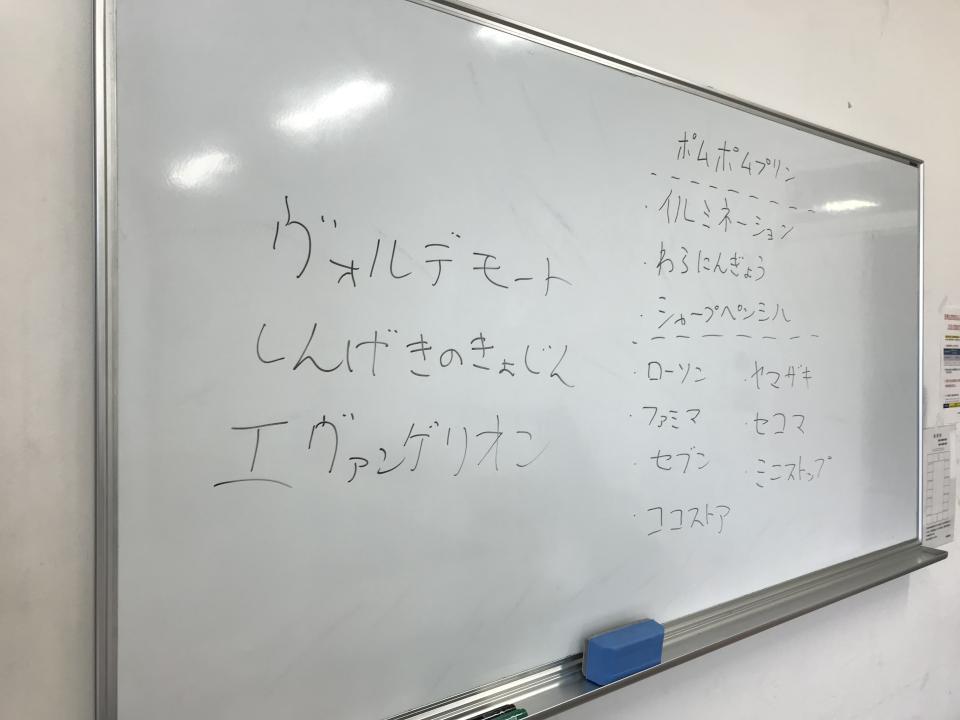 ヴォルデモート
しんげきのきょじん
エヴァンゲリオン
ポムポムプリン
・イルミネーション
・わろにんぎょう
・シャープペンシル
・ローソン ・ヤマザキ
・ファミマ ・セコマ
・セブン ・ミニストップ
・ココストア